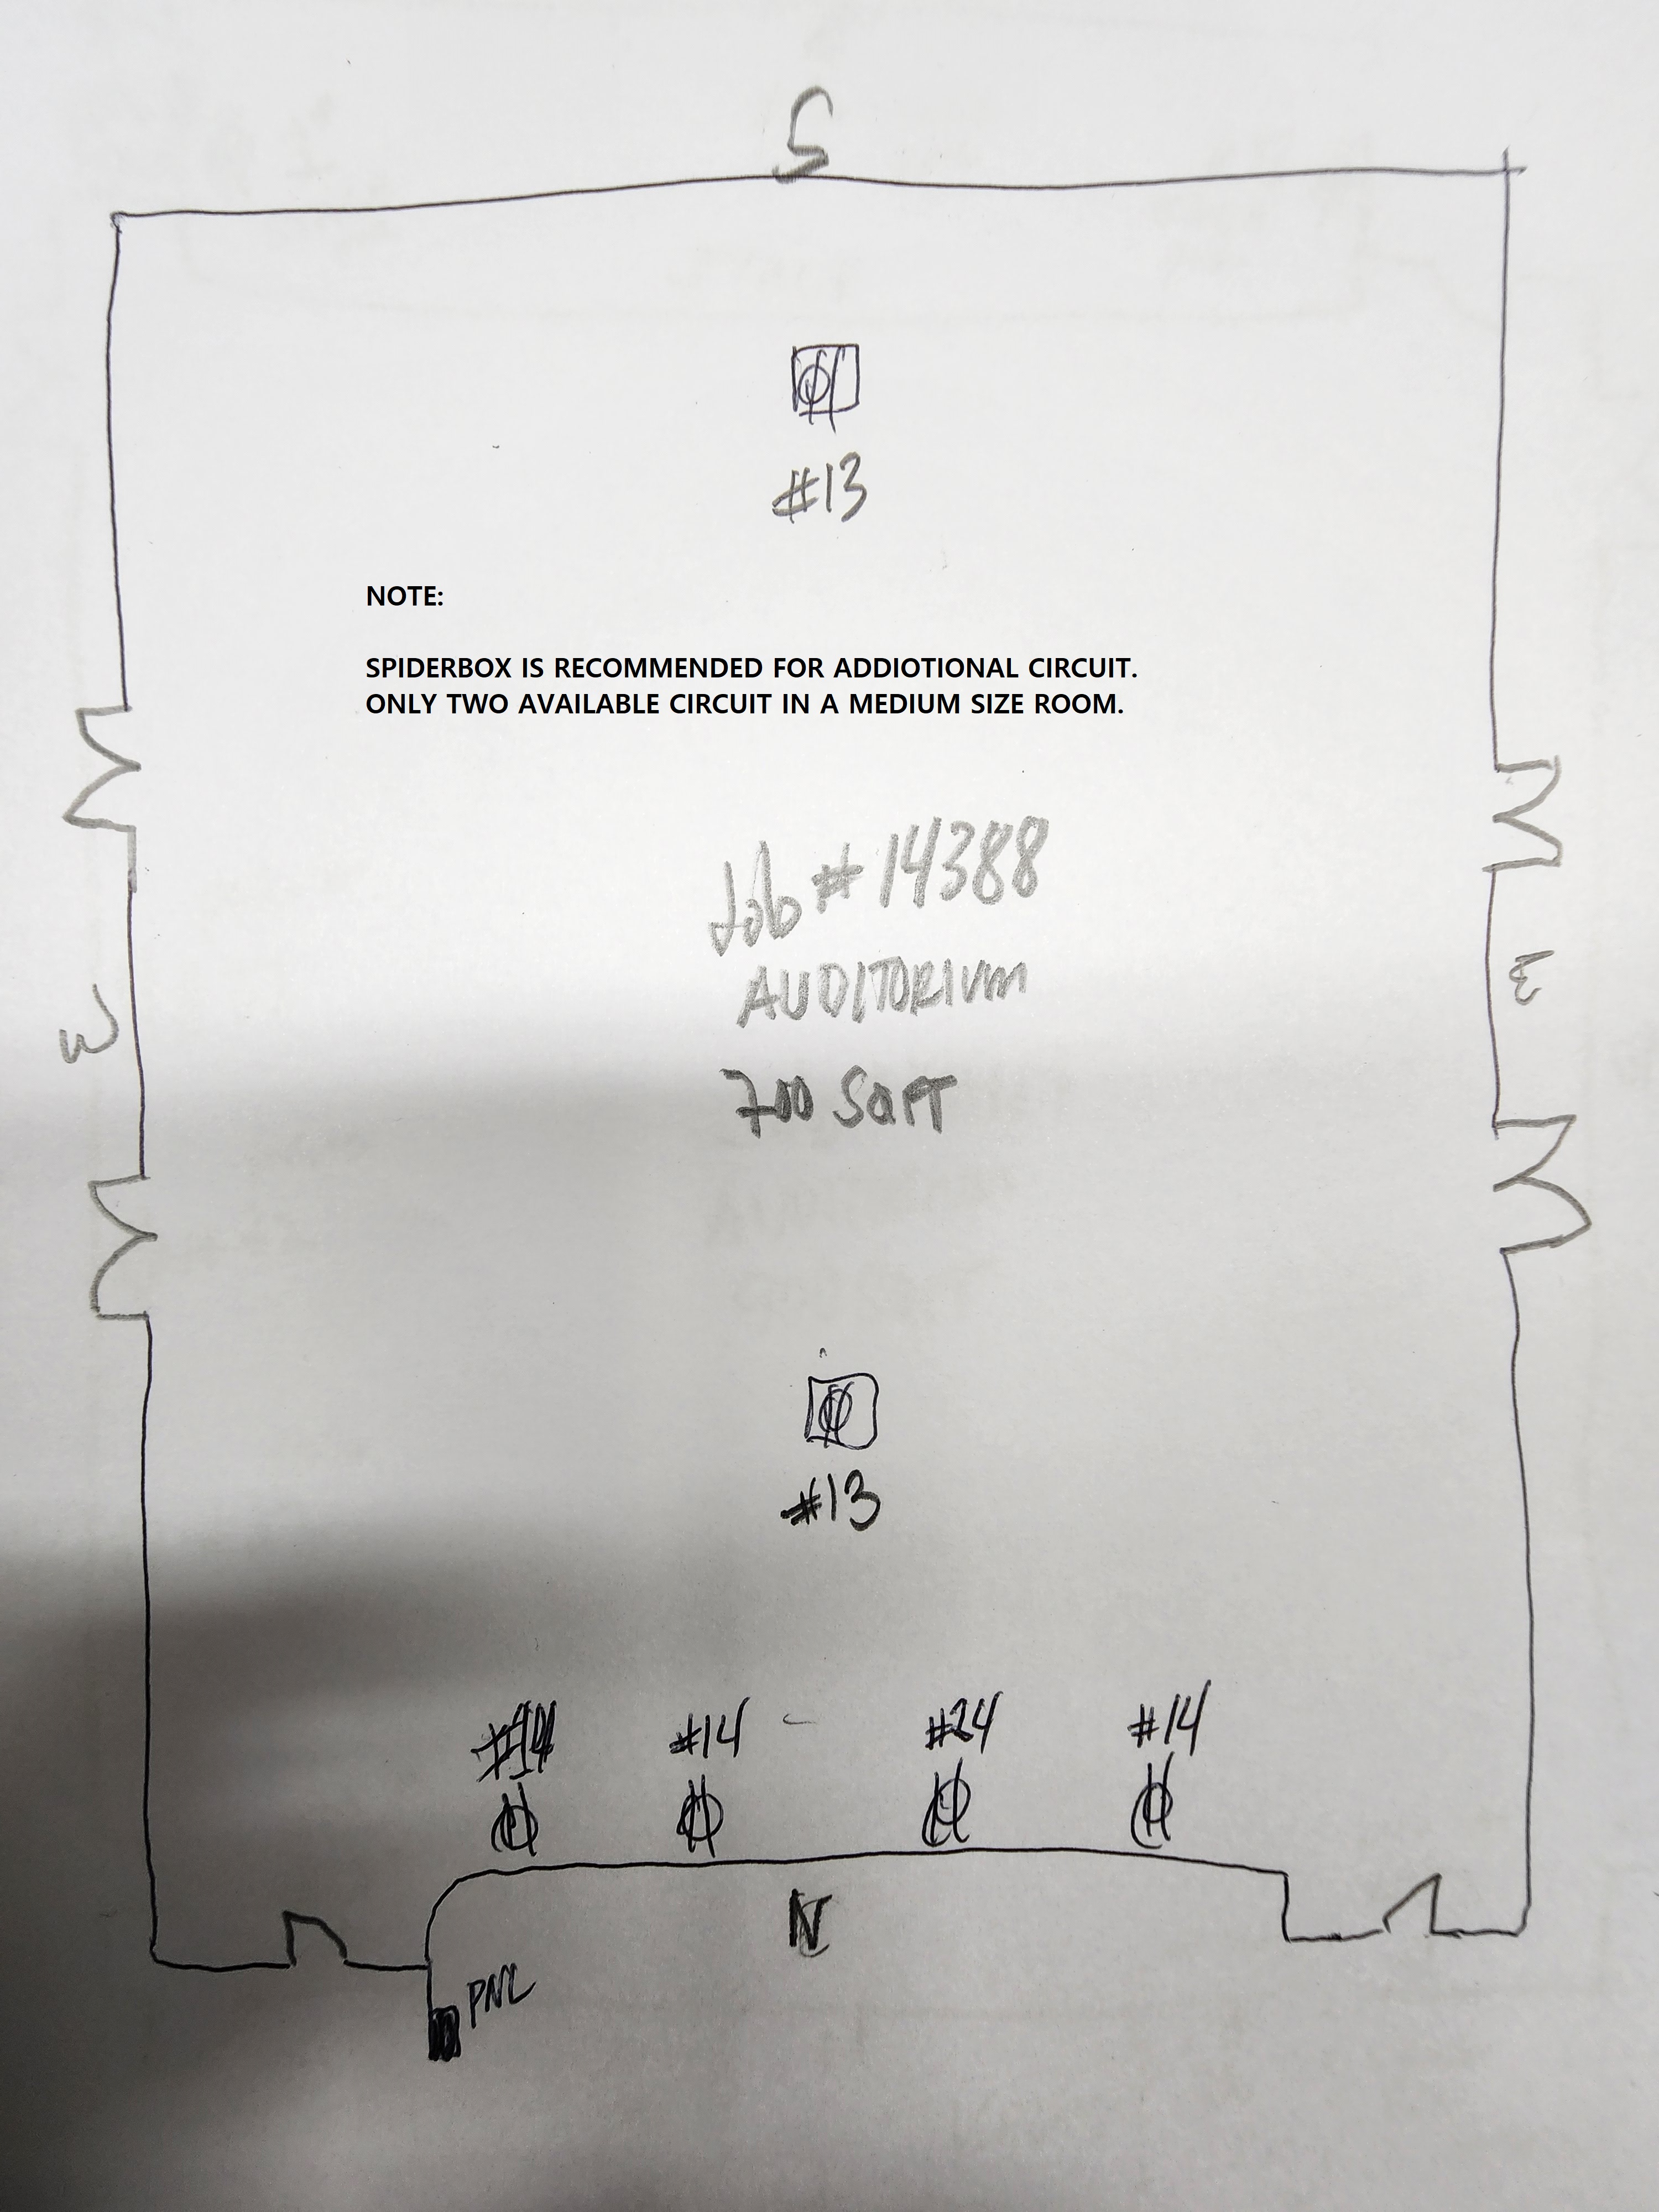 S
#13
NOTE:
SPIDERBOX IS RECOMMENDED FOR ADDIOTIONAL CIRCUIT.
ONLY TWO AVAILABLE CIRCUIT IN A MEDIUM SIZE ROOM.
Job # 14388
AUDITORIUM
E
W
700 SQFT
#13
#14 #24 #14
N
PNL